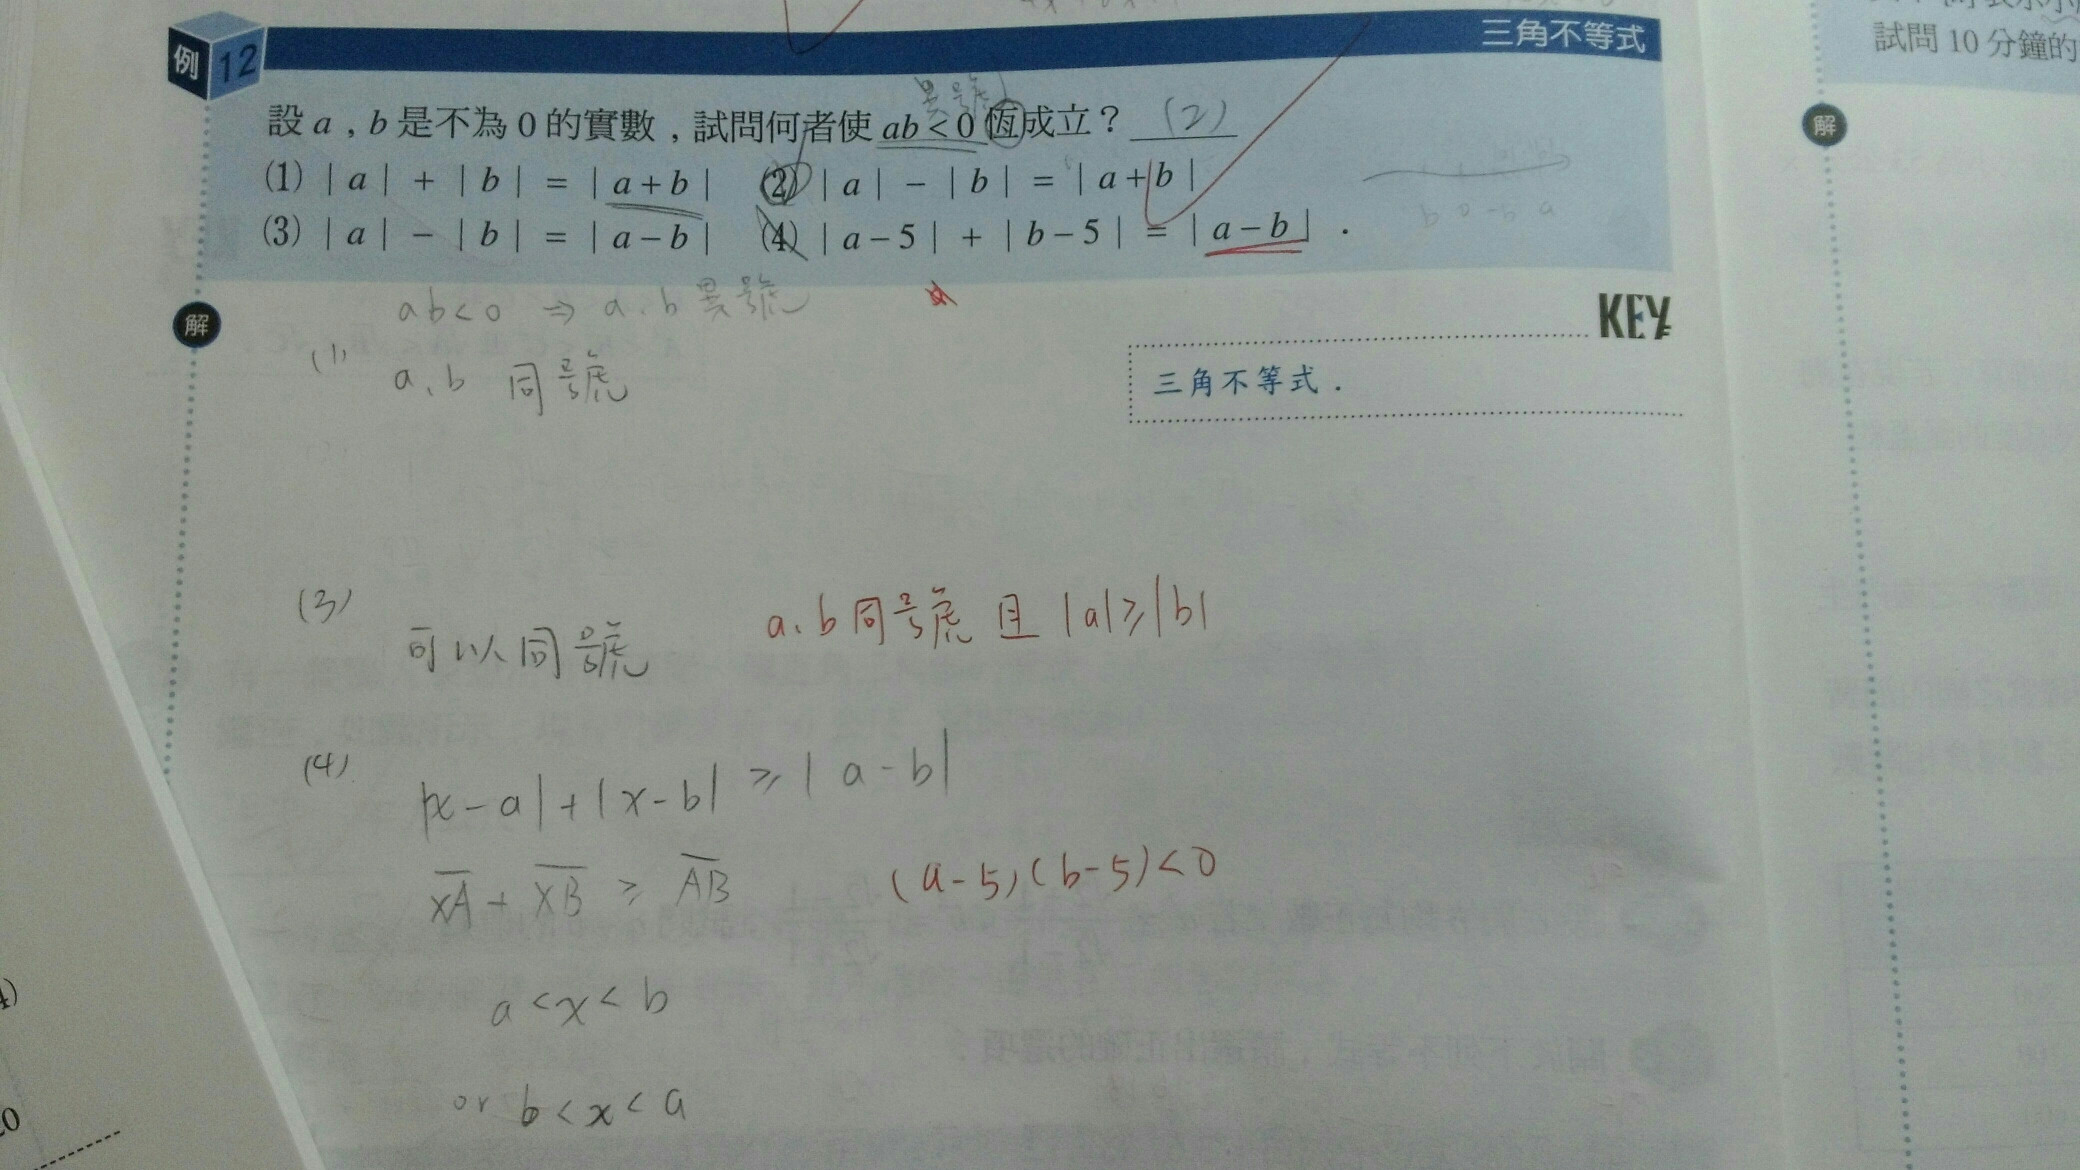 例 12
三角不等式
異號
設 a , b 是不為 0 的實數 , 試問何者使 ab < 0 恆成立？ (2)
(1) | a | + | b | = | a + b | (2) | a | − | b | = | a + b |
(3) | a | − | b | = | a − b | (4) | a − 5 | + | b − 5 | = | a − b | .
b 0 -b a
解
ab<0 ⇒ a、b 異號
KEY
三角不等式 .
(1)
a、b 同號
(3)
可以同號
a、b 同號 且 |a|≥|b|
(4)
|x-a|+|x-b| ≥ |a-b|
XA + XB ≥ AB
(a-5)(b-5)<0
a<x<b
or b<x<a
試問 10 分鐘的
解